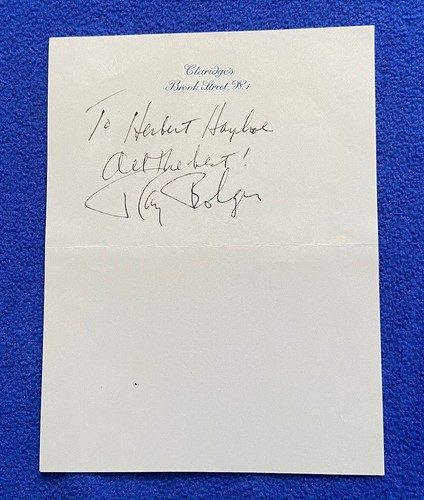 Claridge's
Brook Street, W.1
To Herbert Hayhoe
All the best!
Ray Bolger